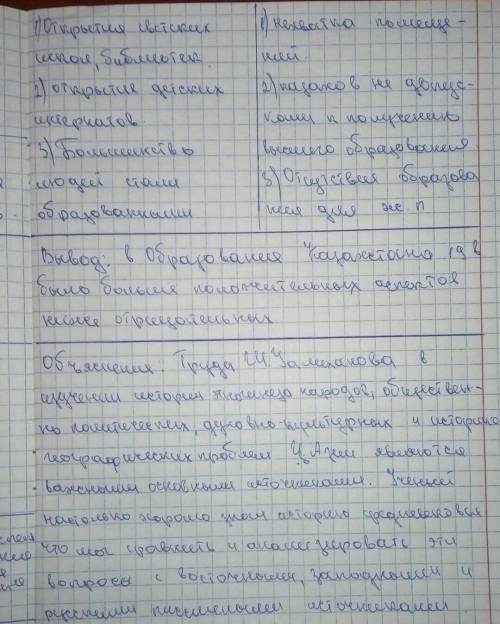 1) Открытия светских
школ, библиотек.
2) открытие детских
интернатов.
3) Большинство
людей стали
образованными
1) нехватка помеще-
ний
2) казахов не допус-
кали к получению
высшего образования
3) Отсутствия образова
ния для ж.п
Вывод: в Образования Казахстана 19 в
было больше положительных аспектов
ниже отрицательных
Объяснения: Труда Ш. Уалиханова в
изучении истории народов, обществен-
но политических, духовно-культурных и историко
географических проблем Ц. Азии являются
важными основными источниками. Ученый
настолько хорошо знал историю средневековья
что мог сравнить и анализировать эти
вопросы с восточными, западными и
русскими письменными источниками.